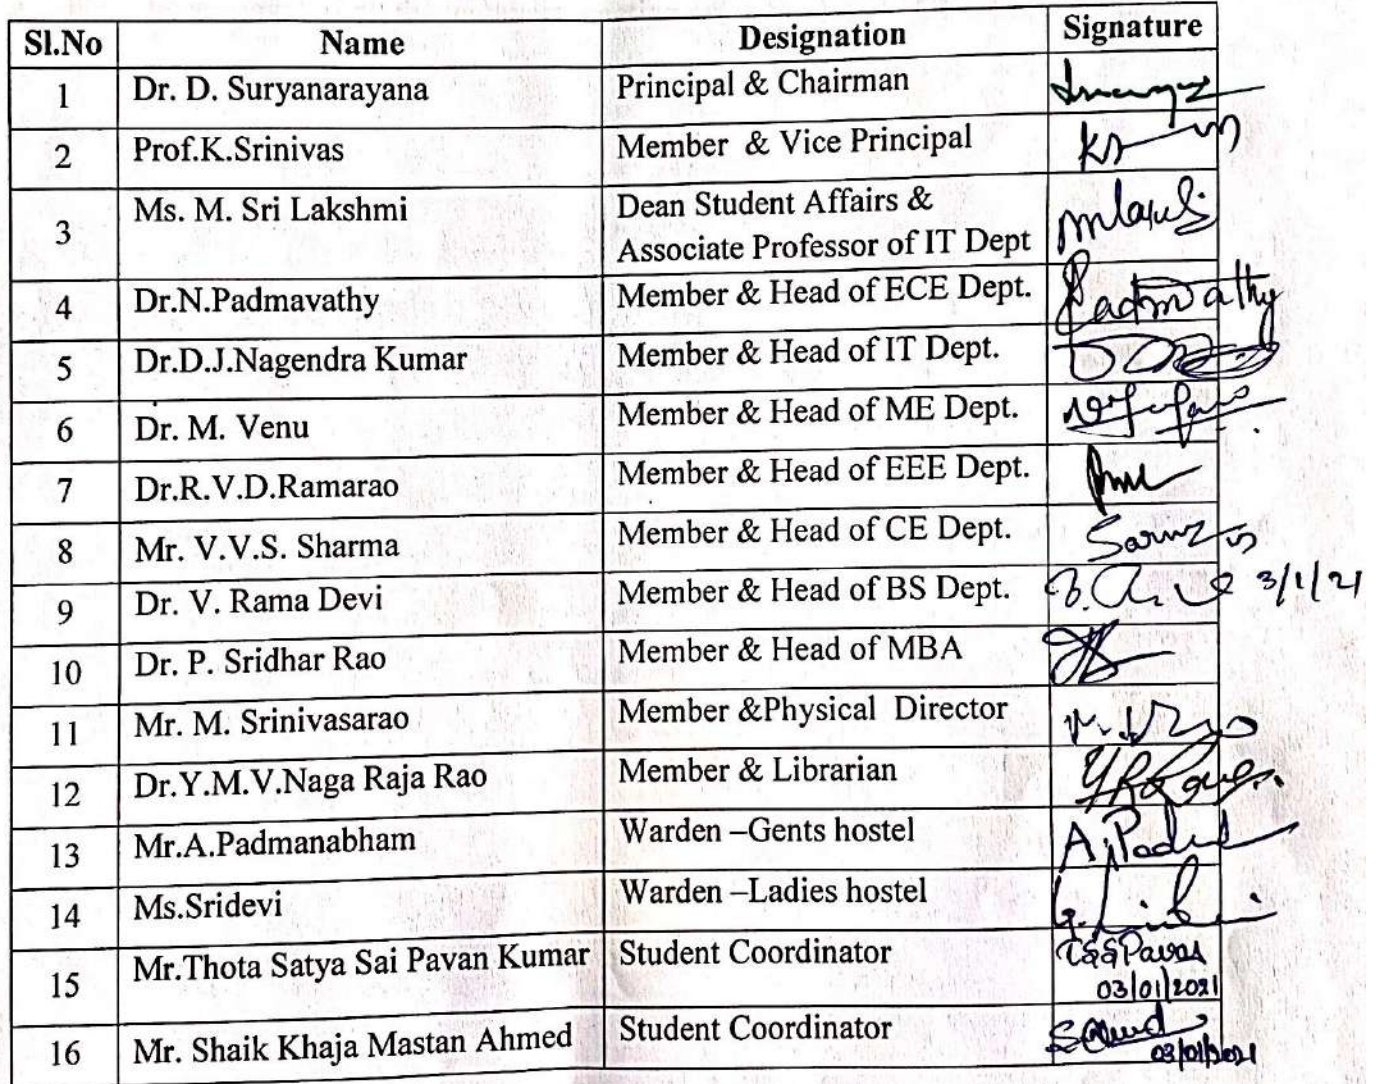 Sl.No Name Designation Signature
1 Dr. D. Suryanarayana Principal & Chairman
2 Prof.K.Srinivas Member & Vice Principal
3 Ms. M. Sri Lakshmi Dean Student Affairs &
Associate Professor of IT Dept
4 Dr.N.Padmavathy Member & Head of ECE Dept. Padmavathy
5 Dr.D.J.Nagendra Kumar Member & Head of IT Dept.
6 Dr. M. Venu Member & Head of ME Dept.
7 Dr.R.V.D.Ramarao Member & Head of EEE Dept.
8 Mr. V.V.S. Sharma Member & Head of CE Dept.
9 Dr. V. Rama Devi Member & Head of BS Dept. 3/1/21
10 Dr. P. Sridhar Rao Member & Head of MBA
11 Mr. M. Srinivasarao Member &Physical Director
12 Dr.Y.M.V.Naga Raja Rao Member & Librarian
13 Mr.A.Padmanabham Warden –Gents hostel
14 Ms.Sridevi Warden –Ladies hostel
15 Mr.Thota Satya Sai Pavan Kumar Student Coordinator
03/01/2021
16 Mr. Shaik Khaja Mastan Ahmed Student Coordinator
03/01/2021